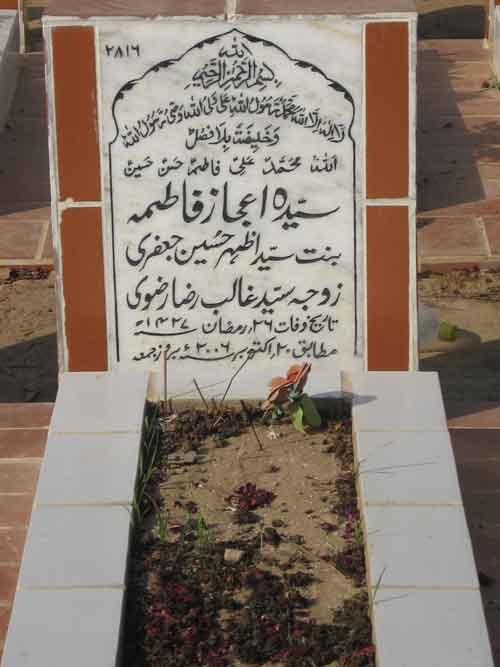 ۲۸۱۶
الله
بسم الله الرحمن الرحیم
لا اله الا الله محمد رسول الله علی ولی الله وصی رسول الله
وخلیفتہ بلا فصل
اللہ محمد علی فاطمہ حسن حسین
سیدہ اعجاز فاطمہ
بنت سید اظہر حسین جعفری
زوجہ سید غالب رضا رضوی
تاریخ وفات ۲۶، رمضان ۱۴۲۷ھ
مطابق ۲۰، اکتوبر ۲۰۰۶ء بروز جمعہ